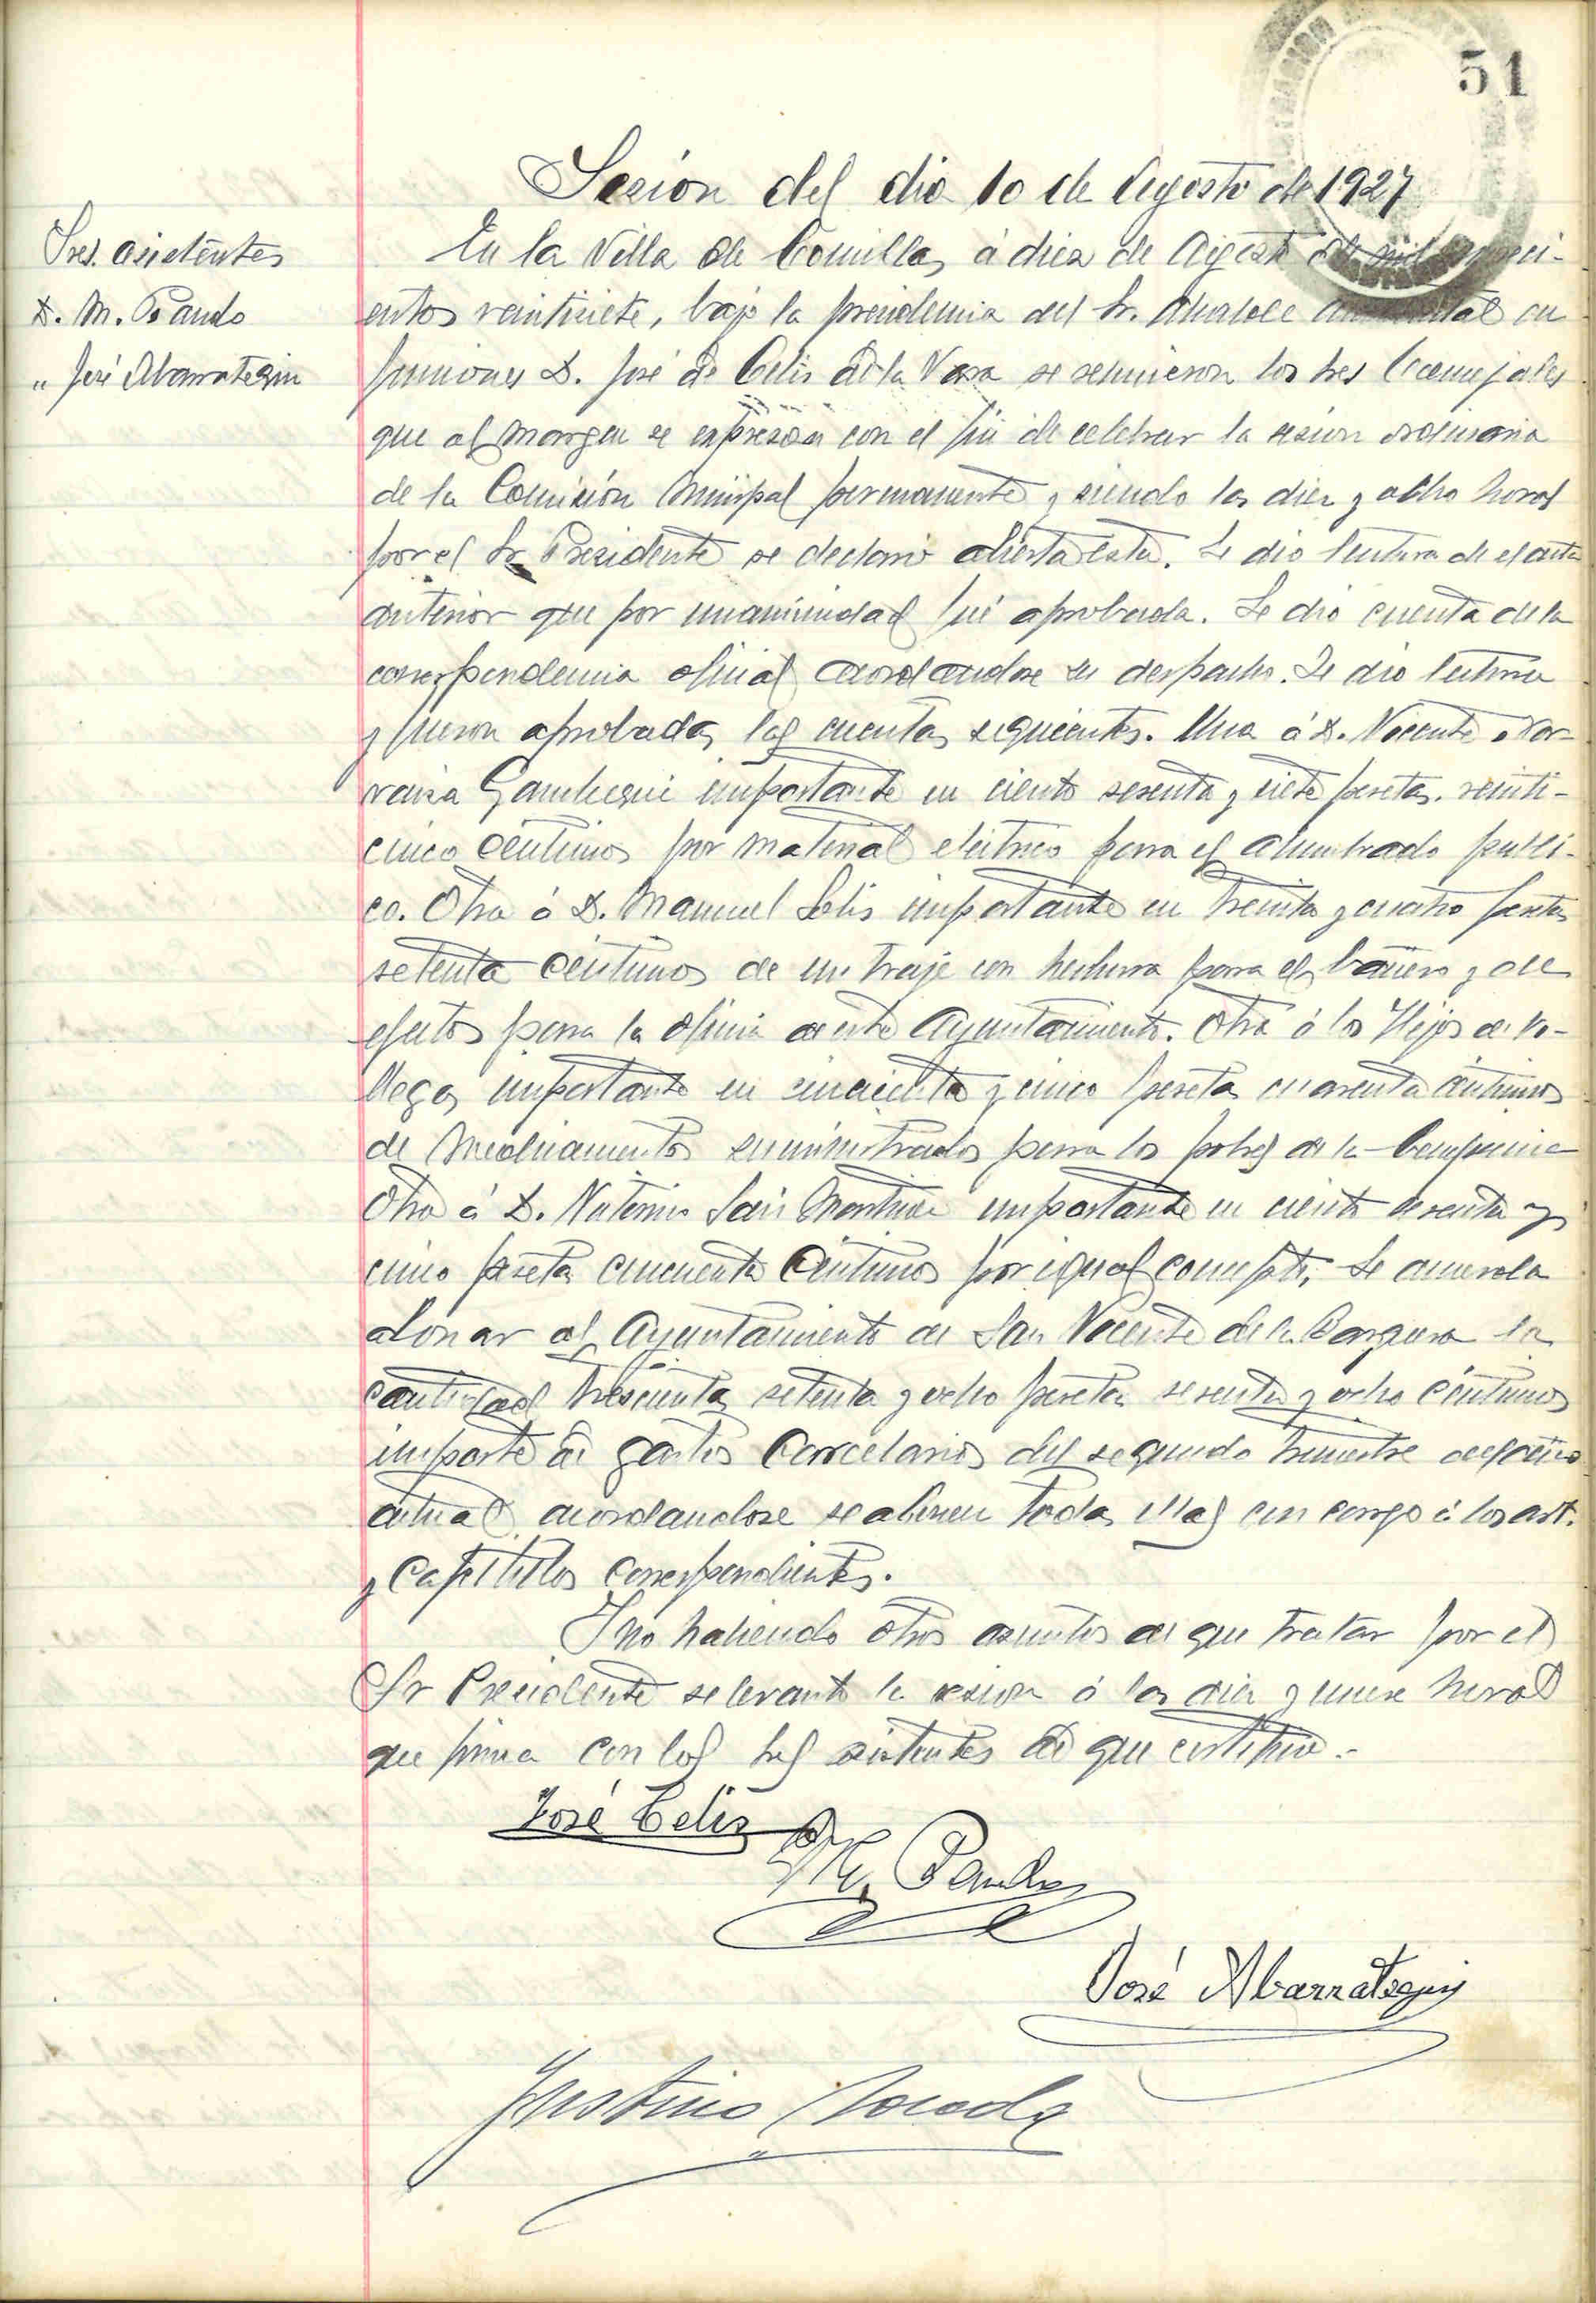 51
Sesion del dia 10 de Agosto de 1927
Sres. asistentes
D. M. Pando
" José Abarrategui
En la Villa de Comillas, á diez de Agosto de mil noveci-
entos veintisiete, bajo la presidencia del Sr. Alcalde accidental en
funciones D. José de Celis de la Vara se reunieron los tres Concejales
que al margen se expresan con el fin de celebrar la sesion ordinaria
de la Comisión Municipal permanente y siendo las diez y ocho horas
por el Sr. Presidente se declaró abierta esta. Se dio lectura de el acta
anterior que por unanimidad fué aprobada. Se dio cuenta de la
correspondencia oficial acordandose su despacho. Se dio lectura
y fueron aprobadas las cuentas siguientes. Una á D. Vicente
importante en ciento sesenta y siete pesetas veinti-
cinco centimos por material eléctrico para el alumbrado publi-
co. Otra á D. Manuel Solis importante en treinta y cuatro pesetas
setenta centimos de un traje con hechura para el bañero y de
efectos para la oficina de este Ayuntamiento. Otra á los Hijos de Vi-
llegas importante en cincuenta y cinco pesetas cuarenta centimos
de medicamentos suministrados para los pobres de la beneficencia
Otra á D. importante en ciento sesenta y
cinco pesetas cincuenta centimos por igual concepto, se acuerda
abonar al Ayuntamiento de San Vicente de la Barquera la
cantidad trescientas setenta y ocho pesetas sesenta y ocho céntimos
importe de gastos carcelarios del segundo trimestre del año
actual acordandose se abonen todas ellas con cargo á los art.
y capitulos correspondientes.
Y no habiendo otros asuntos de que tratar por el
Sr Presidente se levantó la sesion á las diez y nueve horas
que firma con los tres asistentes de que certifico.-
José Celis
M. Pando
José Abarrategui
Justino